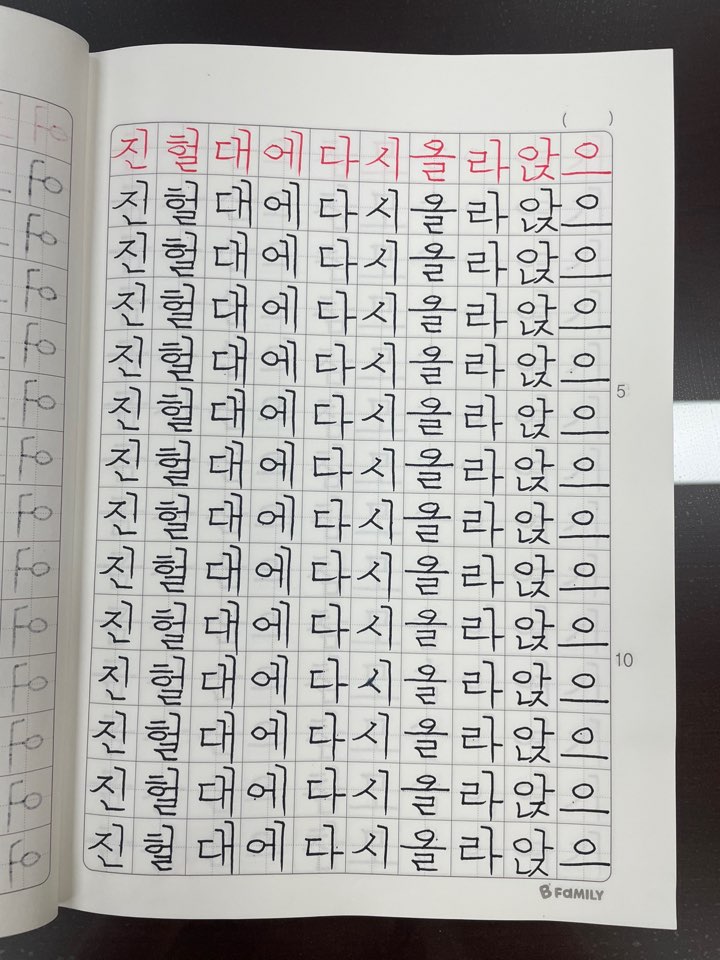 ( )
진헐대에다시올라앉으
진헐대에다시올라앉으
진헐대에다시올라앉으
진헐대에다시올라앉으
진헐대에다시올라앉으
진헐대에다시올라앉으
5
진헐대에다시올라앉으
진헐대에다시올라앉으
진헐대에다시올라앉으
진헐대에다시올라앉으
진헐대에다시올라앉으
10
진헐대에다시올라앉으
진헐대에다시올라앉으
진헐대에다시올라앉으
B FAMILY